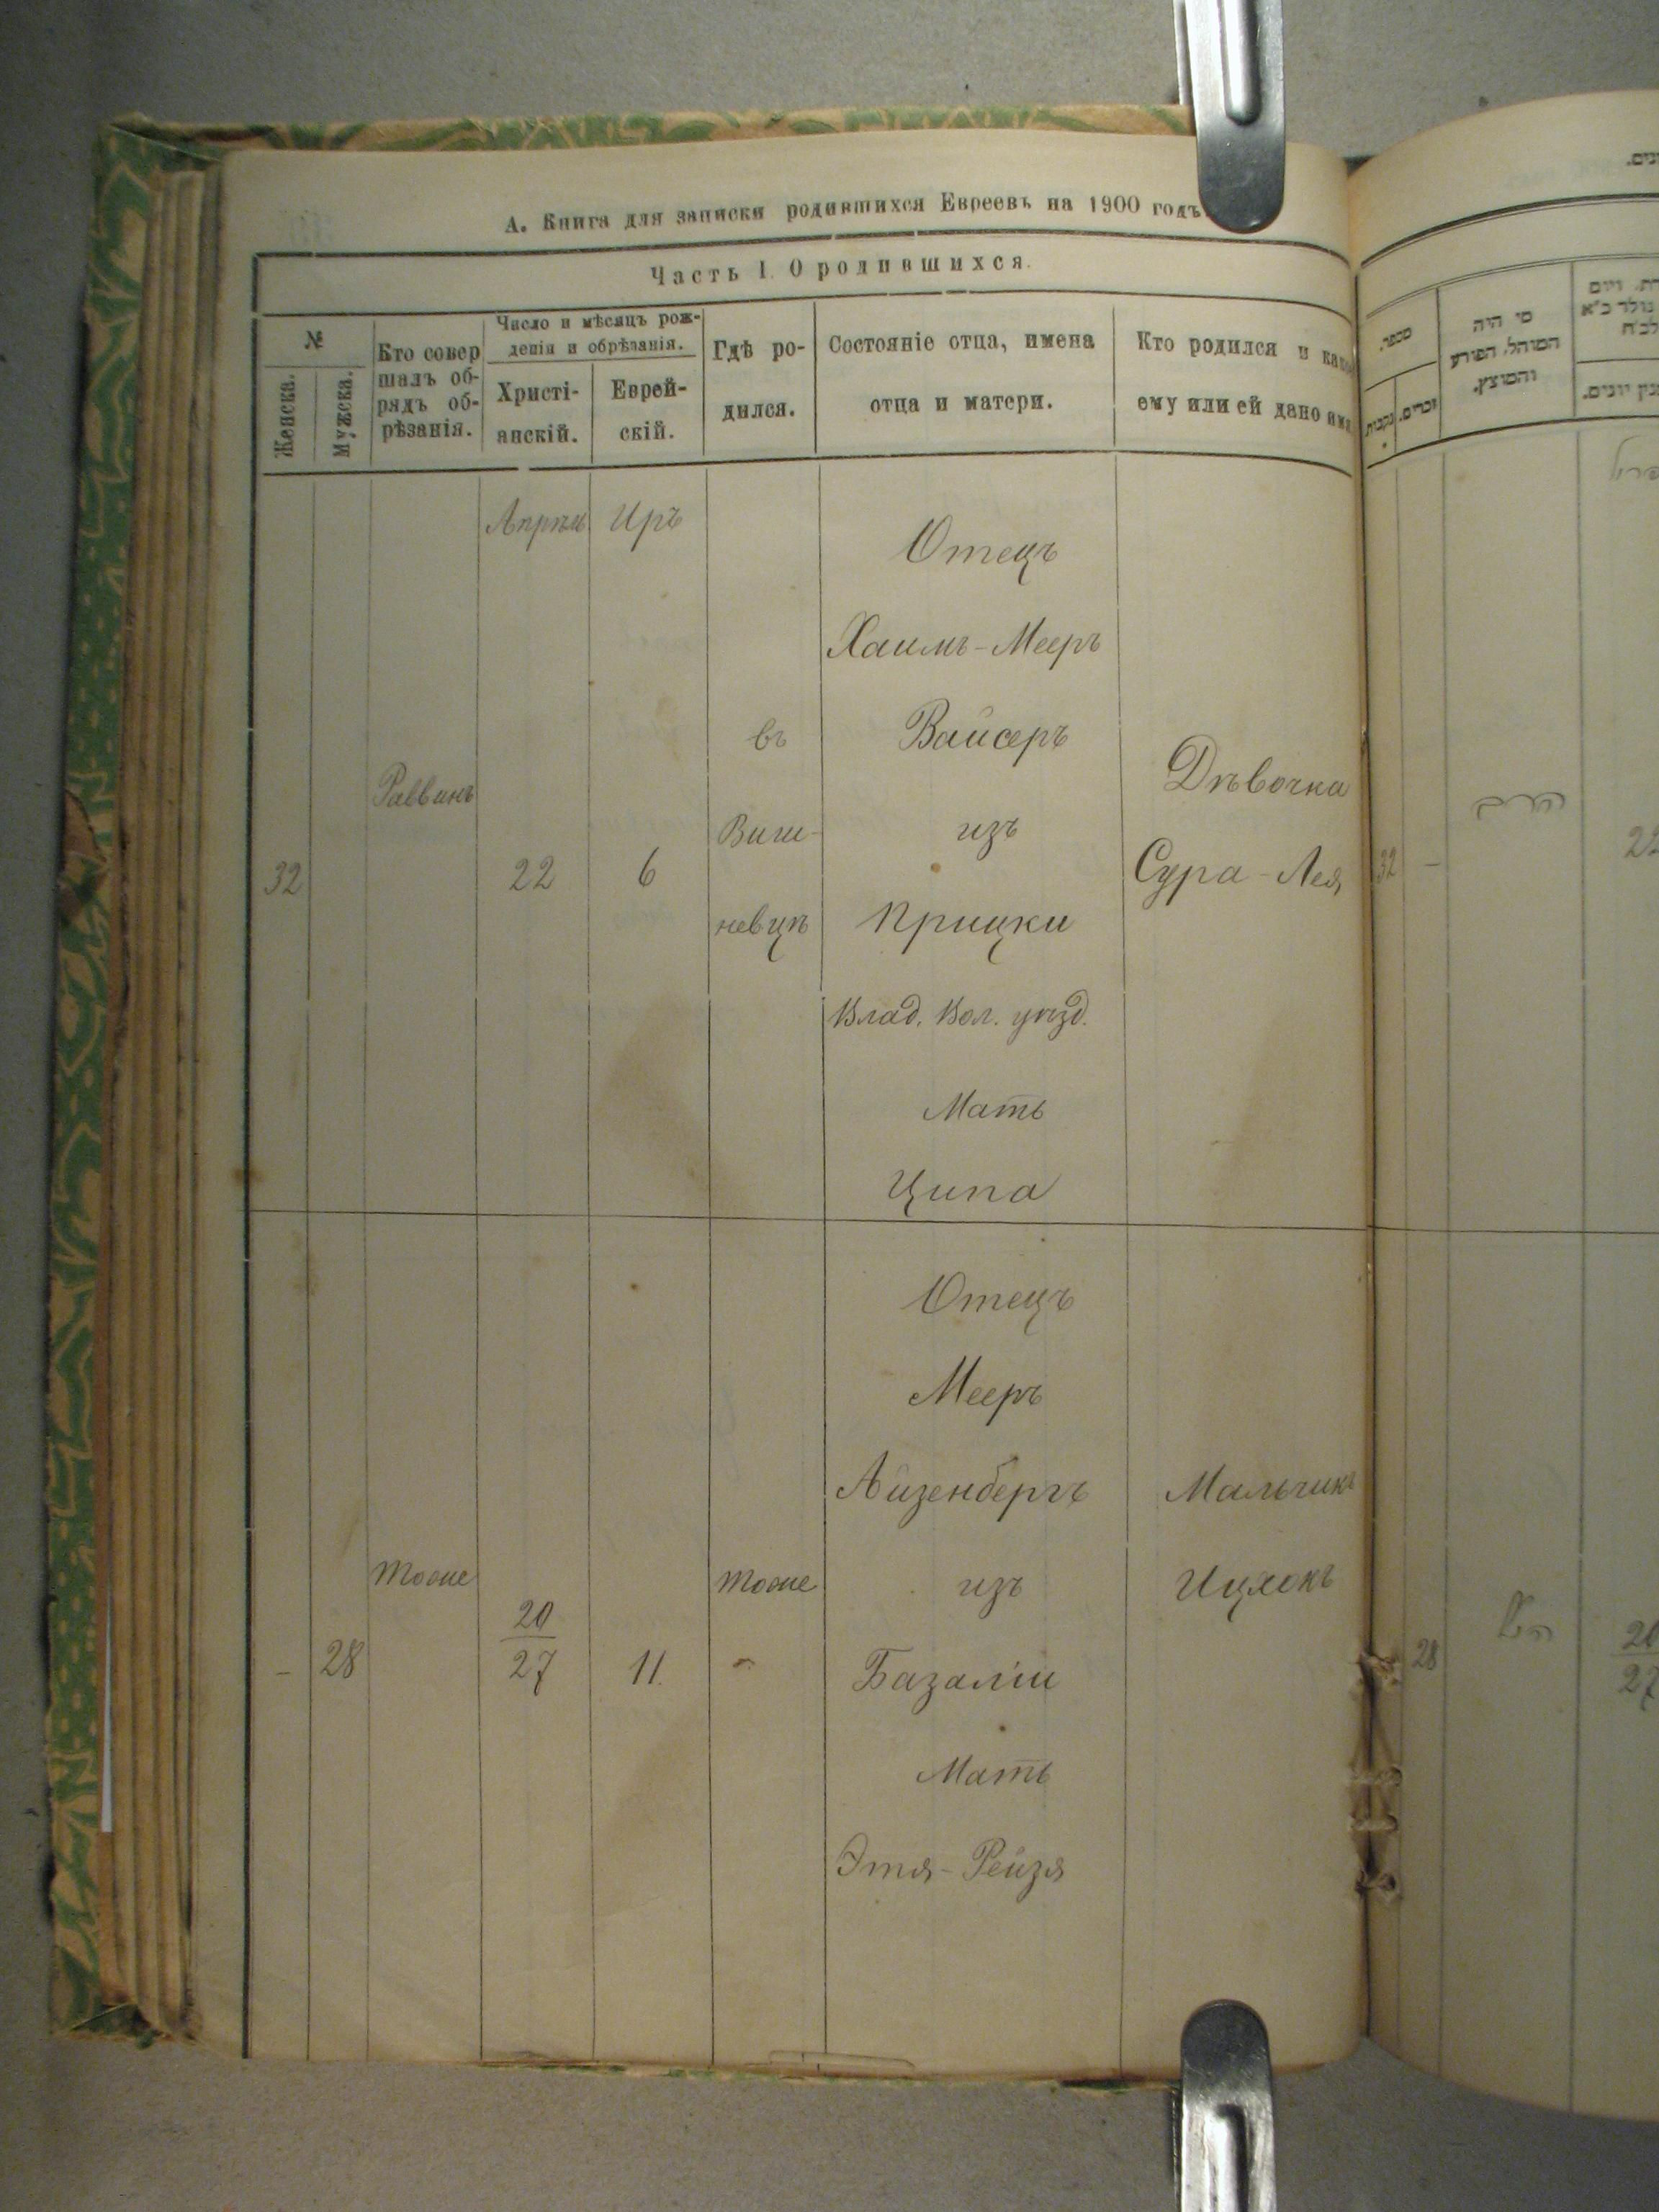 А. Книга для записки родившихся Евреевъ на 1900 годъ.
Часть I. О родившихся.
№
Женска.
Мужска.
Кто совер
шалъ об-
рядъ об-
рѣзанія.
Число и мѣсяцъ рож-
денія и обрѣзанія.
Христі-
анскій.
Еврей-
скій.
Гдѣ ро-
дился.
Состояніе отца, имена
отца и матери.
Кто родился и
ему или ей дано
Апрѣль Иръ
32
Раввинъ
22
6
въ
Виш-
невцѣ
Отецъ
Хаимъ-Мееръ
Вайсеръ
изъ
Прицки
Влад. Вол. уѣзд.
Мать
Ципа
Дѣвочка
Сура-Лея
- 28
Тоже
20
27
11.
Тоже
Отецъ
Мееръ
Айзенбергъ
изъ
Базаліи
Мать
Этя-Рейзя
Мальчикъ
Ицхокъ
מספר.
נקבות
זכרים.
מי היה
המוהל, הפורע
והמוצץ.
32 -
הרב
28
20
27